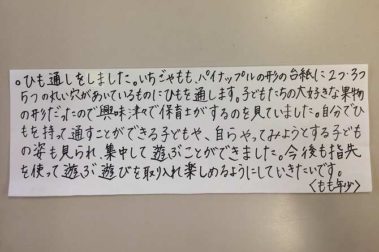 。ひも通しをしました。いちごやもも、パイナップルの形の台紙に2つ・3つ
5つの丸い穴があいているものにひもを通します。子どもたちの大好きな果物
の形だったので興味津々で保育士がするのを見ていました。自分でひ
もを持って通すことができる子どもや、自らやってみようとする子ども
の姿も見られ、集中して遊ぶことができました。今後も指先
を使って遊ぶ遊びを取り入れ楽しめるようにしていきたいです。
〈もも年少〉